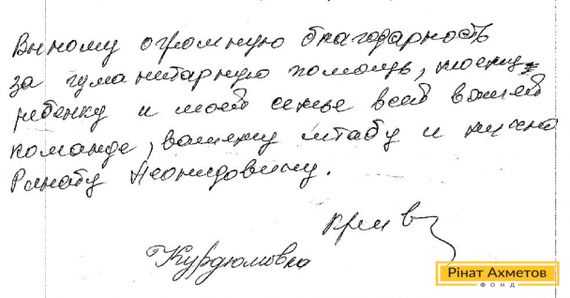 Выношу огромную благодарность
за гуманитарную помощь, моему
ребенку и моей семье всей вашей
команде, вашему штабу и лично
Ринату Леонидовичу.
Курдюмовка
Рінат Ахметов
ФОНД